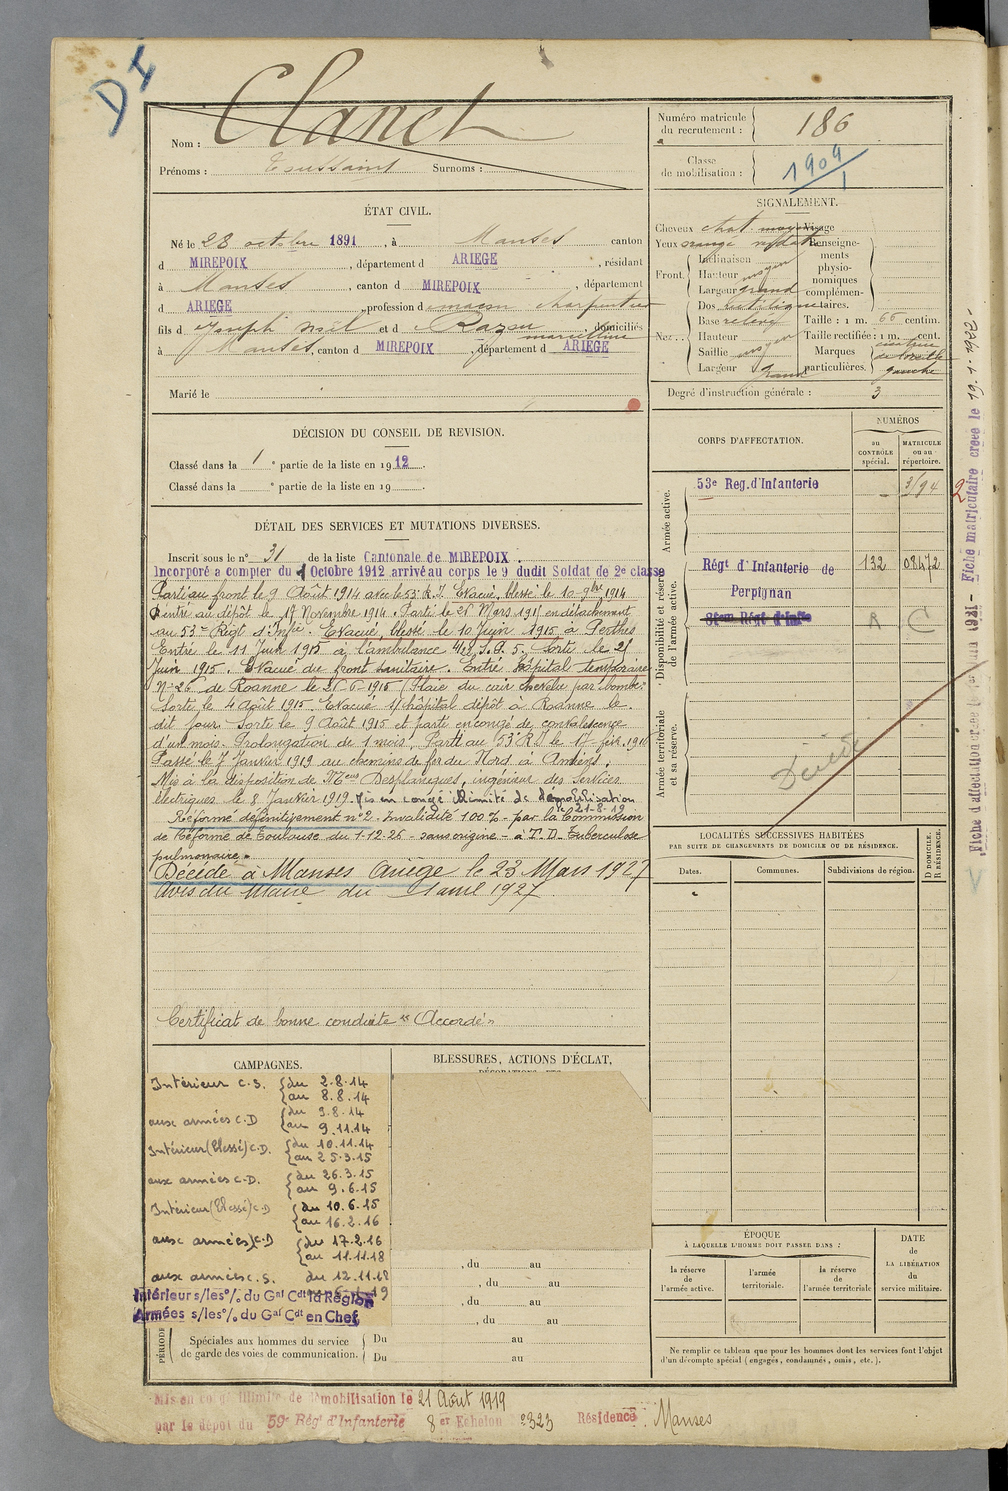 DI
Nom : Clanet
Prénoms : Toussaint Surnoms :
Numéro matricule du recrutement : 186
Classe de mobilisation : 1909
ÉTAT CIVIL.
Né le 28 octobre 1891, à Manses canton
d MIREPOIX, département d ARIEGE, résidant
à Manses, canton d MIREPOIX, département
d ARIEGE, profession de maçon charpentier
fils d Joseph Noël et d Razou marceline, domiciliés
à Manses, canton d MIREPOIX, département d ARIEGE
Marié le
SIGNALEMENT.
Cheveux chat. moyen Visage
Yeux orangé
Renseignements physionomiques complémentaires.
Front.
Inclinaison
Hauteur moyen
Largeur grand
Nez..
Dos rectiligne
Base relevé
Hauteur moyen
Saillie moyen
Largeur grand
Taille : 1 m. 66 centim.
Taille rectifiée : 1 m. cent.
Marques particulières. cicatrice de l'oreille gauche
Degré d'instruction générale : 3
DÉCISION DU CONSEIL DE REVISION.
Classé dans la 1e partie de la liste en 1912.
Classé dans la e partie de la liste en 19
DÉTAIL DES SERVICES ET MUTATIONS DIVERSES.
Inscrit sous le n° 31 de la liste Cantonale de MIREPOIX.
Incorporé a compter du 1 Octobre 1912 arrivé au corps le 9 dudit Soldat de 2e classe
Parti au front le 9 Août 1914 avec le 53e R.I. Evacué, blessé le 10 9bre 1914
Rentré au dépôt le 17 Novembre 1914. Parti le 26 Mars 1915 en détachement
au 53e Régt d'Infie. Evacué, blessé le 10 Juin 1915 à Perthes
Entré le 11 Juin 1915 à l'ambulance 4/12 S.P. 5. Sorti le 25
Juin 1915. Evacué du front sanitaire. Entré hôpital temporaire
N° 26 de Roanne le 26-6-1915 (Plaie du cuir chevelu par bombe.
Sorti le 4 Août 1915. Evacué s/ hôpital dépôt à Roanne le
dit jour. Sorti le 9 Août 1915 et parti en congé de convalescence
d'un mois. Prolongation de 1 mois. Parti au 53e RI le 17 fév. 1916
Passé le 7 Janvier 1919 au chemins de fer du Nord à Amiens.
Mis à la disposition de Desplanques, ingénieur des Services
électriques le 8 Janvier 1919. Mis en congé illimité de démobilisation
le 21-8-19
Réformé définitivement n° 2. Invalidité 100 % - par la Commission
de Réforme de Toulouse du 1-12-26 - sans origine - à T.D. Tuberculose
pulmonaire
Décédé à Manses Ariège le 23 Mars 1927
Avis du Maire du 1 avril 1927
Certificat de bonne conduite « Accordé »
CORPS D'AFFECTATION.
NUMÉROS
au CONTRÔLE spécial.
MATRICULE ou au répertoire.
Armée active.
53e Reg. d'Infanterie 3194
Disponibilité et réserve de l'armée active.
Régt d'Infanterie de Perpignan 132 08472
R C
Armée territoriale et sa réserve.
Décédé
LOCALITÉS SUCCESSIVES HABITÉES
PAR SUITE DE CHANGEMENTS DE DOMICILE OU DE RÉSIDENCE.
Dates. Communes. Subdivisions de région.
D DOMICILE. R RÉSIDENCE.
CAMPAGNES.
Intérieur C.S. du 2.8.14
au 8.8.14
aux armées C.D du 9.8.14
au 9.11.14
Intérieur (blessé) C.D. du 10.11.14
au 25.3.15
aux armées C.D. du 26.3.15
au 9.6.15
Intérieur (blessé) C.D du 10.6.15
au 16.2.16
aux armées C.D du 17.2.16
au 11.11.18
aux armées C.S. du 12.11.18
Intérieur s/les o/. du Gal Cdt la Région
Armées s/les o/. du Gal Cdt en Chef
BLESSURES, ACTIONS D'ÉCLAT,
, du au
, du au
, du au
, du au
Spéciales aux hommes du service de garde des voies de communication.
Du au
Du au
ÉPOQUE
À LAQUELLE L'HOMME DOIT PASSER DANS :
la réserve de l'armée active.
l'armée territoriale.
la réserve de l'armée territoriale
DATE de LA LIBÉRATION du service militaire.
Ne remplir ce tableau que pour les hommes dont les services font l'objet
d'un décompte spécial (engagés, condamnés, omis, etc.).
Mis en congé illimité de démobilisation le 21 Août 1919
par le dépôt du 59e Régt d'Infanterie 8er Echelon 2323 Résidence : Manses
Fiche matriculaire créée le 19.1.1922.